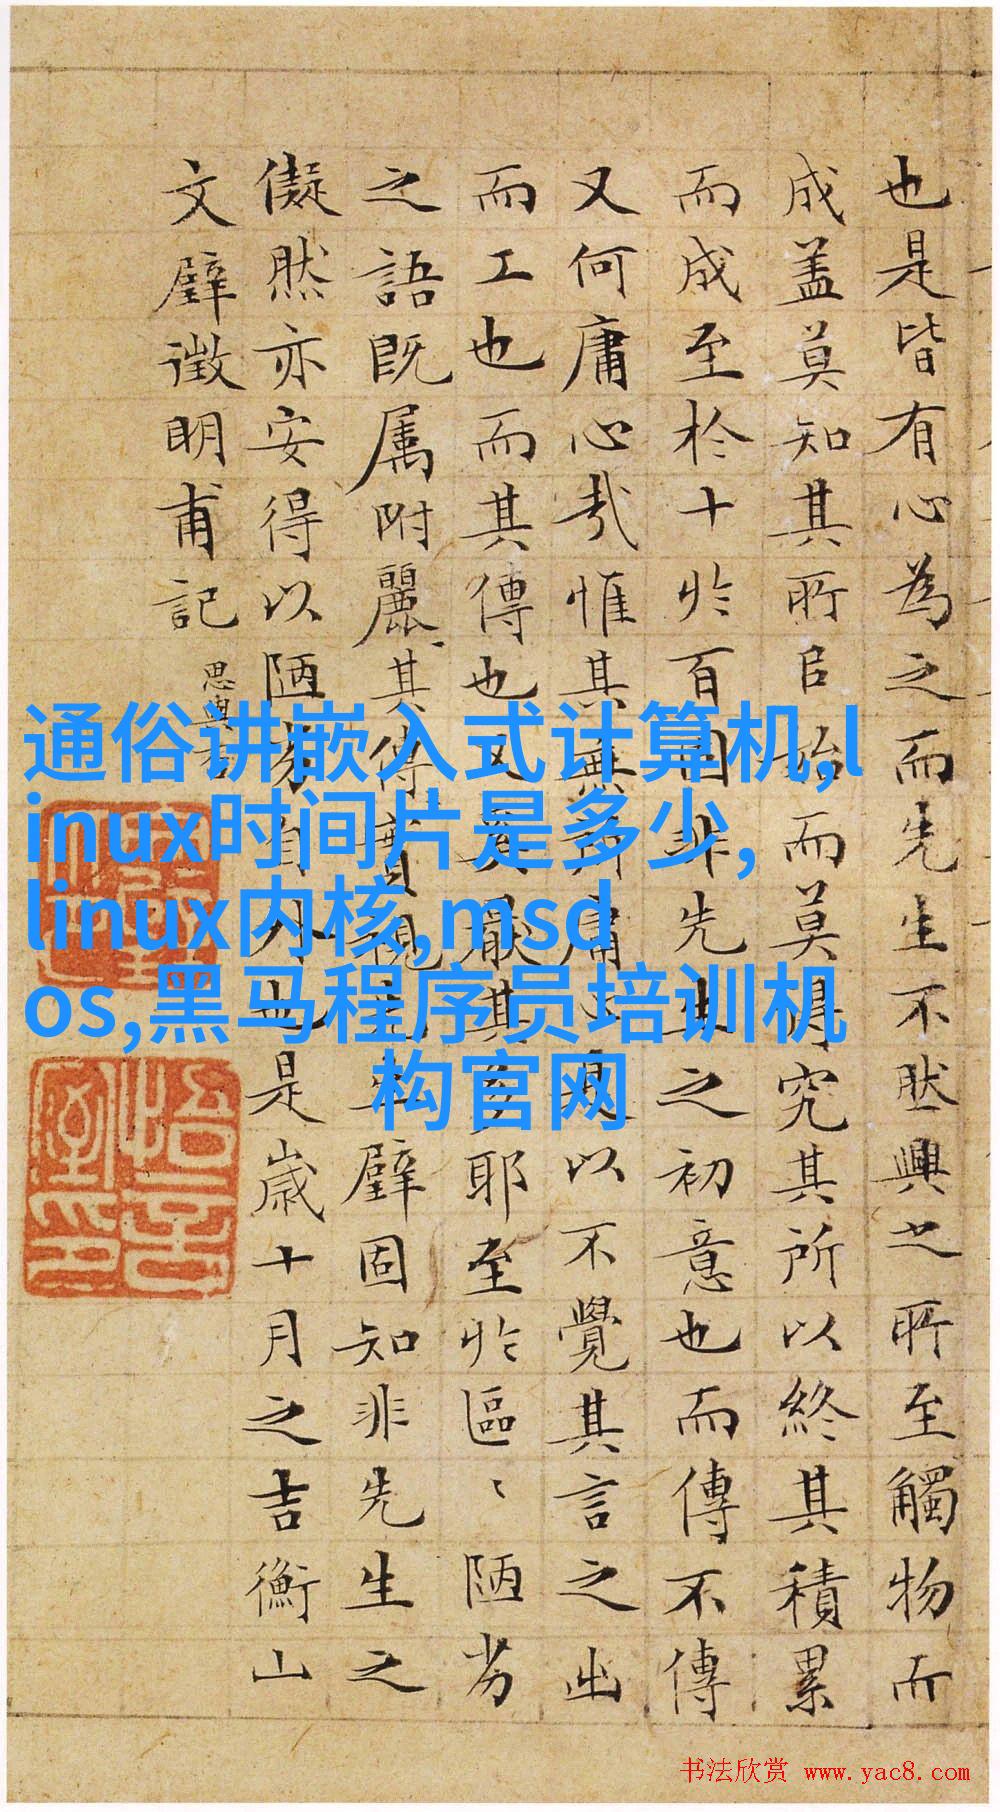 也是皆有心為之而先生不然興之所至觸物而
成盖莫知其所㠯始而莫得究其所以終其積累
而成至於十於百固非先生之初意也而傳不傳
又何庸心哉惟其無所庸心是以不覺其言之出
而工也而其傳也又奚厭其多耶至於區〻陋劣
之語既属附麗其傳實親先生璧固知非先生之
儗然亦安得以陋劣自外也是歲十月之吉衡山
文璧徵明甫記
通俗讲嵌入式计算机,l
inux时间片是多少,
linux内核,msd
os,黑马程序员培训机
构官网
书法欣赏 www.yac8.com